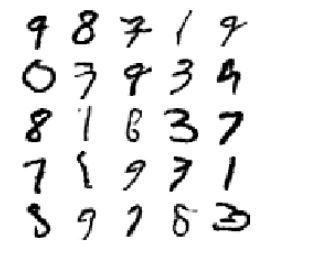 9 8 7 1 9
0 7 9 3 4
8 1 6 3 7
7 1 9 7 1
8 9 7 8 3